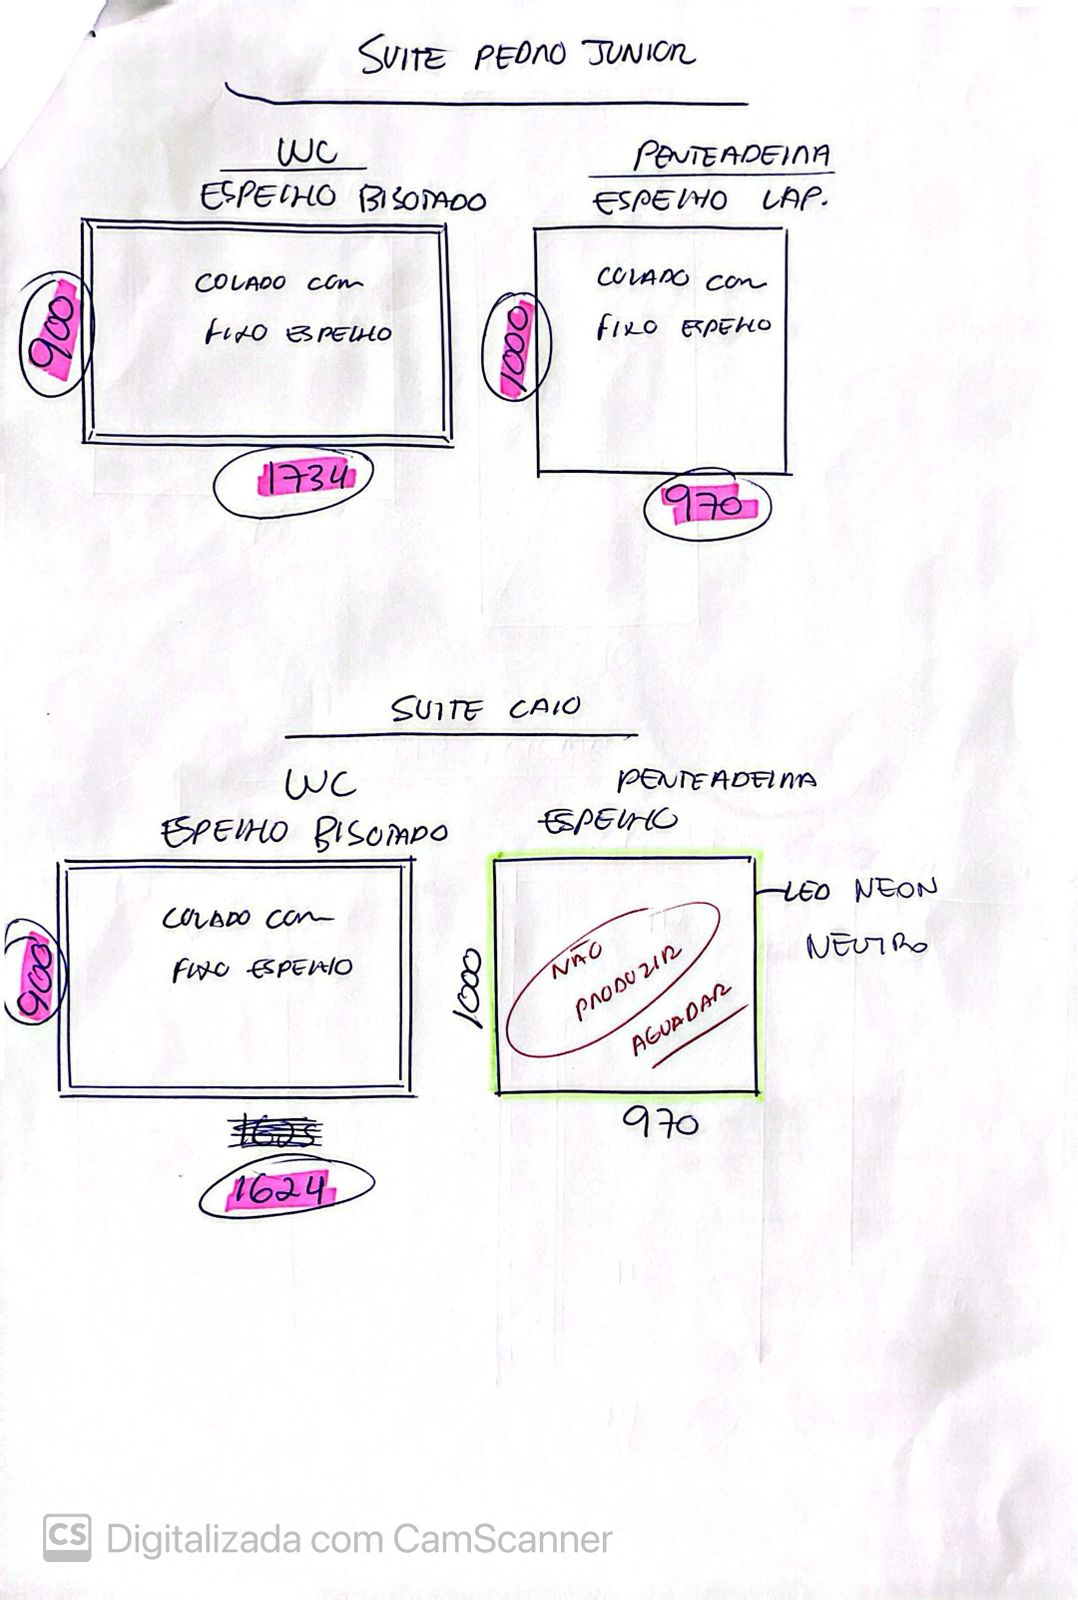 SUITE PEDRO JUNIOR
WC
ESPELHO BISOTADO
COLADO COM
FIXO ESPELHO
900
1734
PENTEADEIRA
ESPELHO LAP.
COLADO COM
FIXO ESPELHO
1000
970
SUITE CAIO
WC
ESPELHO BISOTADO
COLADO COM
FIXO ESPELHO
900
1625
1624
PENTEADEIRA
ESPELHO
LED NEON
NEUTRO
NÃO
PRODUZIR
AGUADAR
1000
970
CS Digitalizada com CamScanner